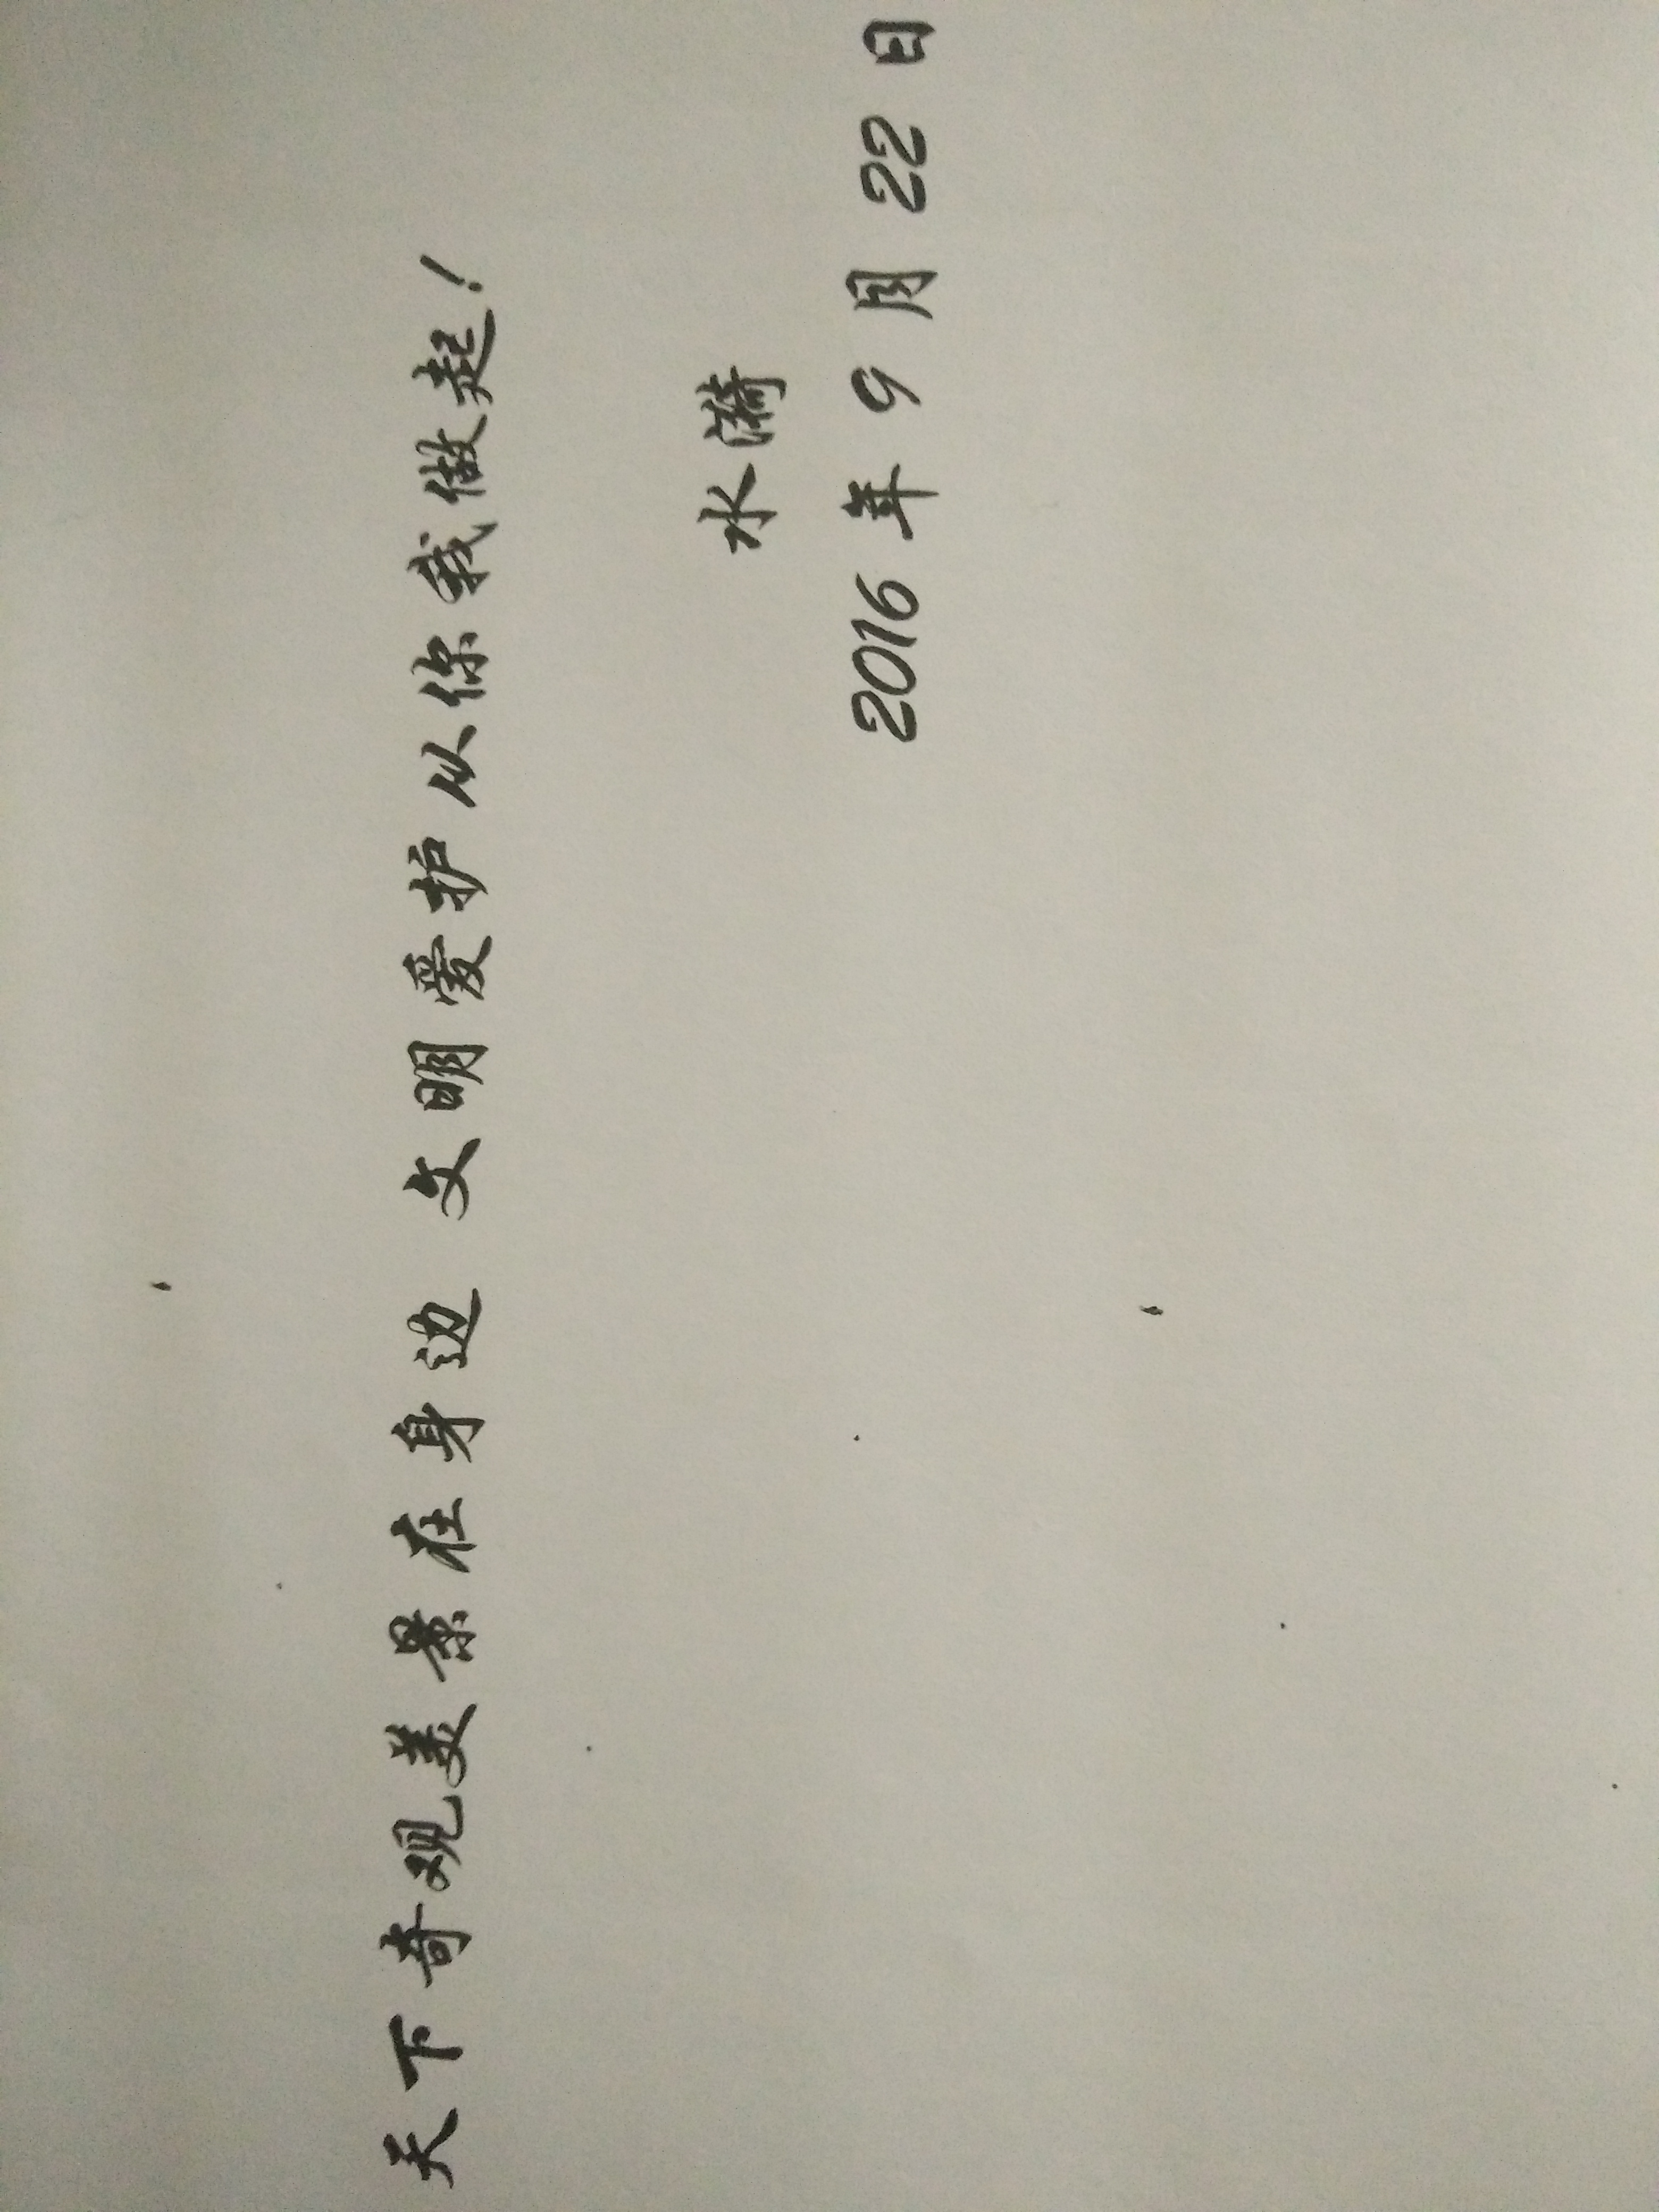 天下奇观美景在身边 文明爱护从你我做起!
水漪
2016年9月22日